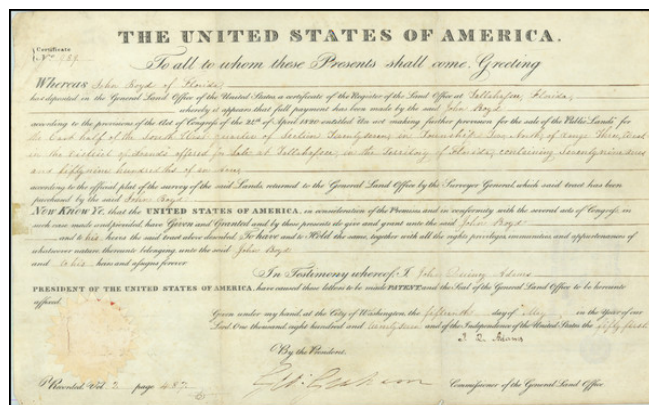 THE UNITED STATES OF AMERICA.
Certificate
No. 989
To all to whom these Presents shall come, Greeting
Whereas John Boyd of Florida,
has deposited in the General Land Office of the United States, a certificate of the Register of the Land Office at Tallahassee, Florida,
whereby it appears that full payment has been made by the said John Boyd
according to the provisions of the Act of Congress of the 24th of April 1820 entitled "An act making further provision for the sale of the Public Lands" for
the East half of the South West quarter of Section Twenty seven in Township Two North, of range Three, West
in the District of Lands offered for Sale at Tallahassee, in the Territory of Florida, containing Seventy nine acres
and fifty nine hundredths of an acre
according to the official plat of the survey of the said Lands, returned to the General Land Office by the Surveyor General, which said tract has been
purchased by the said John Boyd
Now Know Ye, that the UNITED STATES OF AMERICA, in consideration of the Premises and in conformity with the several acts of Congress, in
such case made and provided, have Given and Granted and by these presents do give and grant unto the said John Boyd
and to his heirs the said tract above described, To have and to Hold the same, together with all the rights privileges, immunities and appurtenances of
whatsoever nature thereunto belonging unto the said John Boyd
and to his heirs and assigns forever
In Testimony whereof, I John Quincy Adams
PRESIDENT OF THE UNITED STATES OF AMERICA, have caused these letters to be made PATENT, and the Seal of the General Land Office to be hereunto
affixed.
Given under my hand, at the City of Washington, the fifteenth day of May in the Year of our
Lord One thousand eight hundred and twenty seven and of the Independence of the United States the fifty first
J. Q. Adams
By the President,
Geo: Graham Commissioner of the General Land Office.
Recorded, Vol 2 page 487